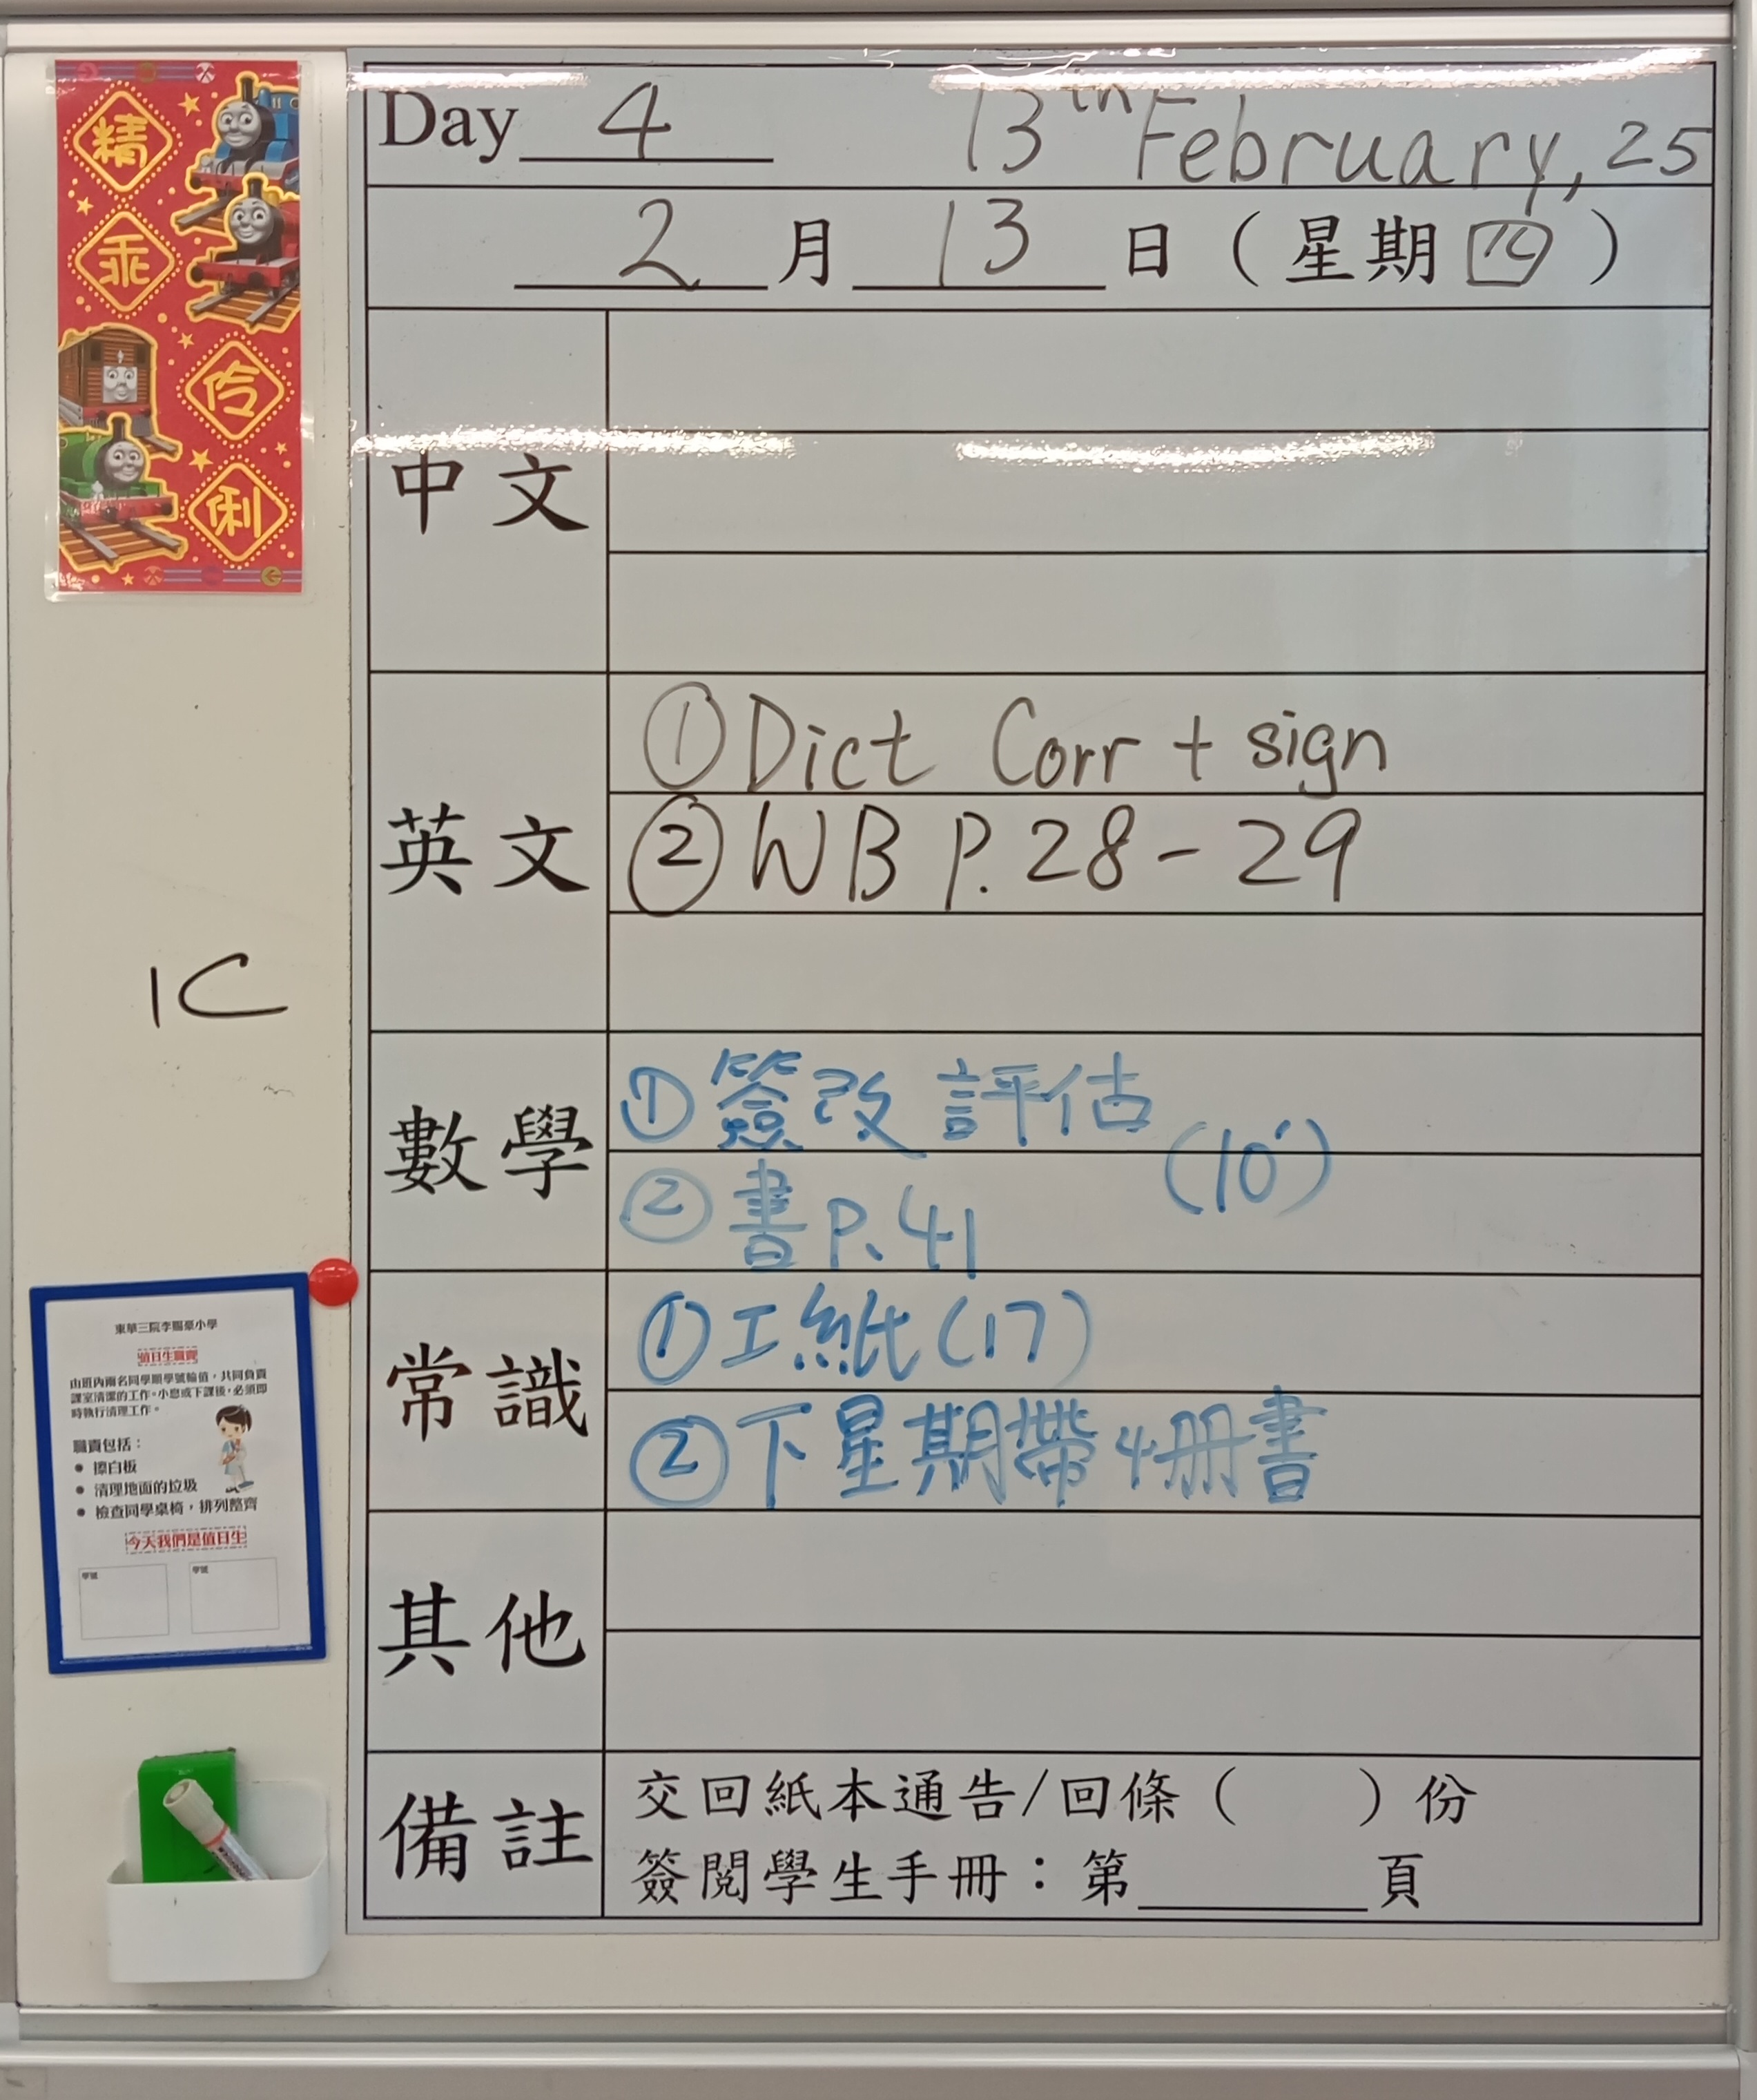 精
乖
伶
俐
Day 4 13th February, 25
2 月 13 日（星期四）
中文
英文
① Dict Corr + sign
② WB P.28-29
1C
數學
① 簽改評估
(10')
② 書P.41
常識
① 工紙(17)
② 下星期帶4冊書
其他
備註
交回紙本通告/回條（ ）份
簽閱學生手冊：第 頁
東華三院李賜豪小學
值日生職責
由班內兩名同學順學號輪值，共同負責
課室清潔的工作。小息或下課後，必須即
時執行清理工作。
職責包括：
• 擦白板
• 清理地面的垃圾
• 檢查同學桌椅，排列整齊
今天我們是值日生
學號 學號